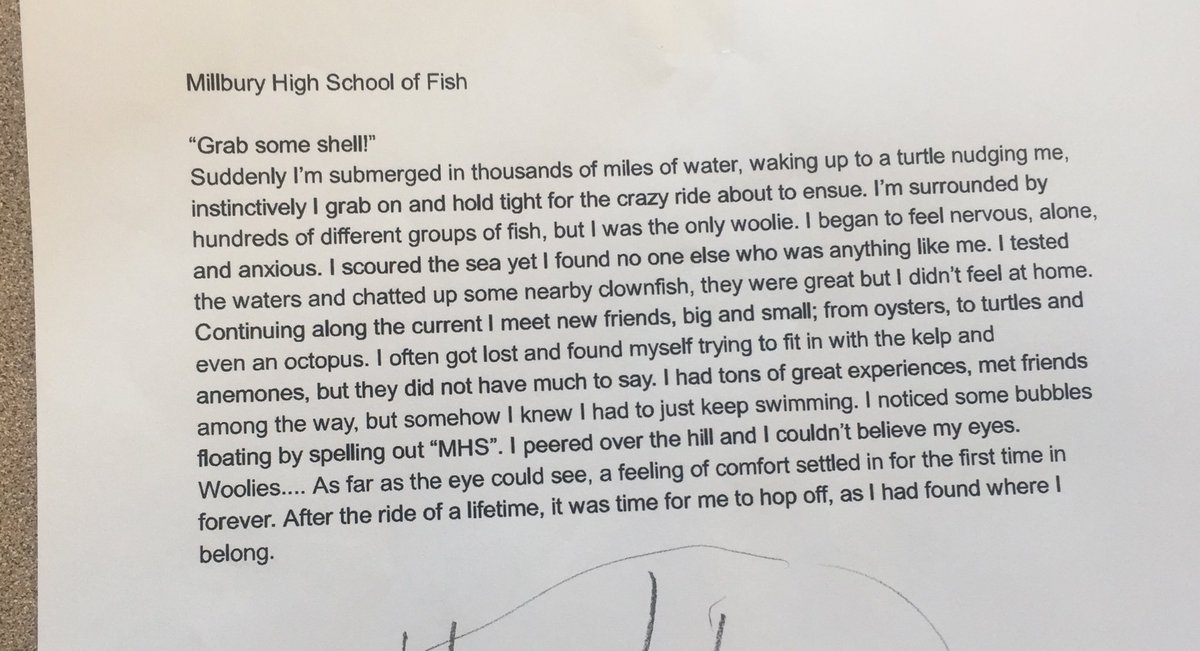 Millbury High School of Fish
“Grab some shell!”
Suddenly I’m submerged in thousands of miles of water, waking up to a turtle nudging me,
instinctively I grab on and hold tight for the crazy ride about to ensue. I’m surrounded by
hundreds of different groups of fish, but I was the only woolie. I began to feel nervous, alone,
and anxious. I scoured the sea yet I found no one else who was anything like me. I tested
the waters and chatted up some nearby clownfish, they were great but I didn’t feel at home.
Continuing along the current I meet new friends, big and small; from oysters, to turtles and
even an octopus. I often got lost and found myself trying to fit in with the kelp and
anemones, but they did not have much to say. I had tons of great experiences, met friends
among the way, but somehow I knew I had to just keep swimming. I noticed some bubbles
floating by spelling out “MHS”. I peered over the hill and I couldn’t believe my eyes.
Woolies.... As far as the eye could see, a feeling of comfort settled in for the first time in
forever. After the ride of a lifetime, it was time for me to hop off, as I had found where I
belong.